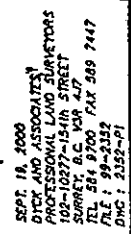 SEPT. 19, 2000
DYCK AND ASSOCIATES
PROFESSIONAL LAND SURVEYORS
102-10277-154th STREET
SURREY, B.C. V3R 4J7
TEL 584 9700 FAX 589 7447
FILE : 99-2352
DWG : 2352-P1